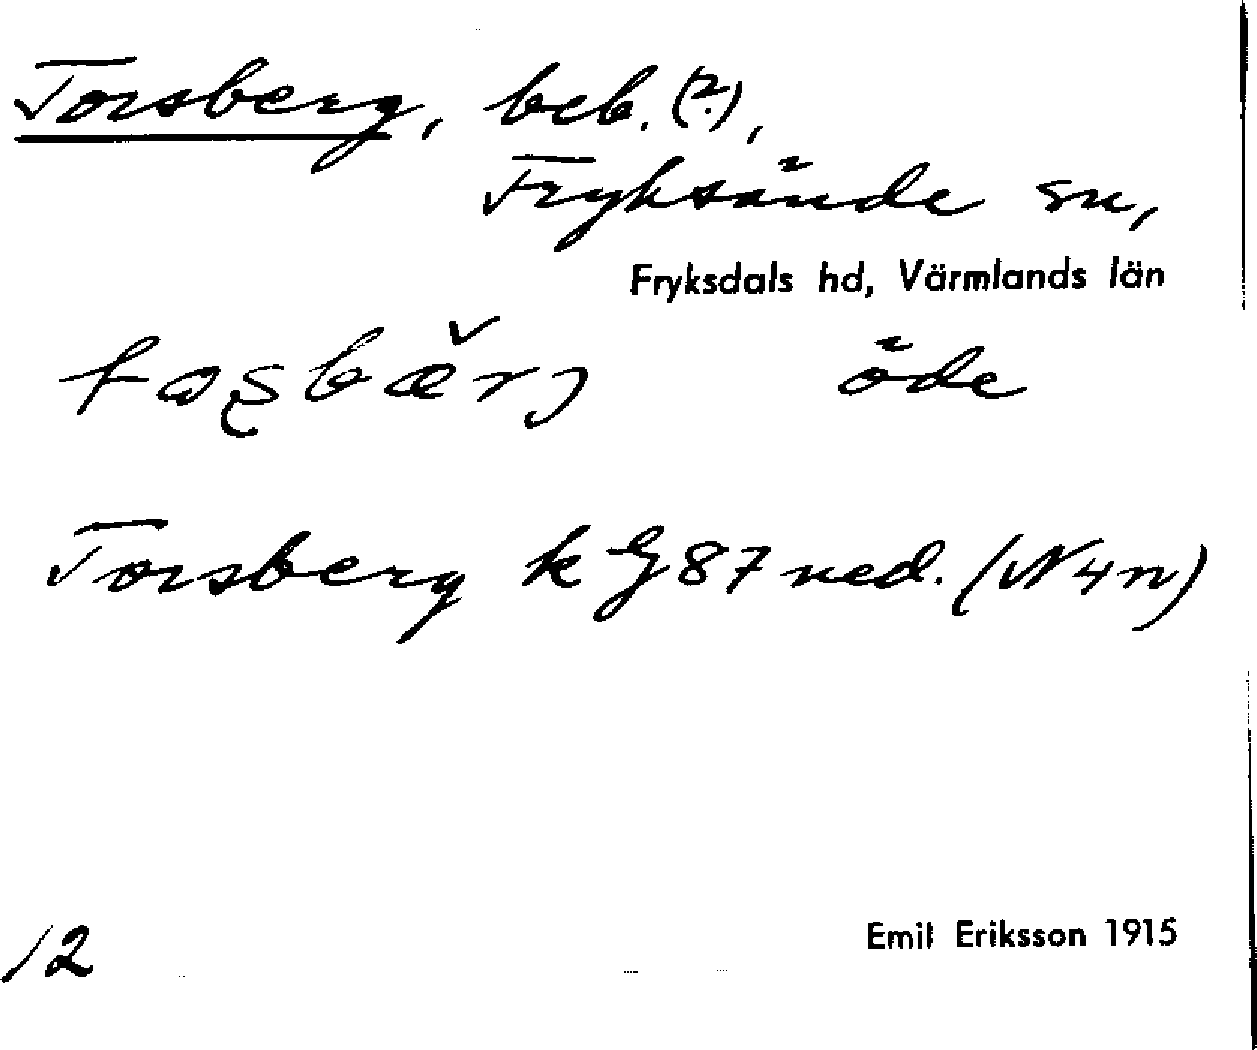 Torsberg, beb. (?),
Fryksände sn,
Fryksdals hd, Värmlands län
öde
Torsberg k G 87 ned. (N4n)
Emil Eriksson 1915
12